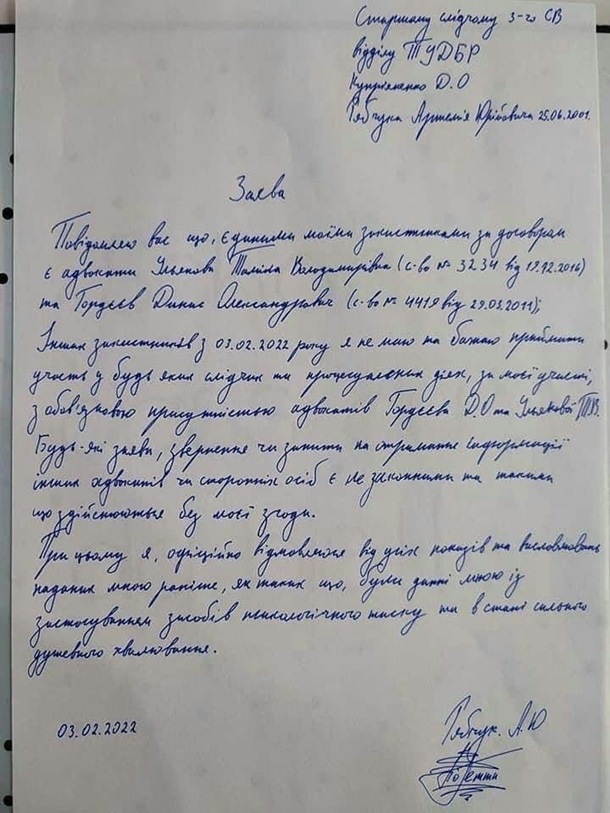 Старшому слідчому 3-го СВ
відділу ТУДБР
Купріяненко Д.О
Рябчука Артемія Юрійовича 25.06.2001.
Заява
Повідомляю вас що, єдиними моїми захистниками за договором
є адвокати Ульянова Таміла Володимирівна (с-во № 3234 від 19.12.2016)
та Гордєєв Денис Олександрович (с-во № 4419 від 29.03.2011);
Інших захистників з 03.02.2022 року я не маю та бажаю приймати
участь у будь яких слідчих та процесуальних діях, за моєї участі,
з обов'язковою присутністю адвокатів Гордєєва Д.О та Ульянової Т.В.
Будь-які заяви, звернення чи запити на отримання інформації
інших адвокатів чи сторонніх осіб є не законними та такими
що здійснюються без моєї згоди.
При цьому я, офіційно відмовляюся від усіх показів та висловлювань
наданих мною раніше, як таких що, були данні мною із
застосуванням засобів психологічного тиску та в стані сильного
душевного хвилювання.
03.02.2022
Рябчук. А.Ю